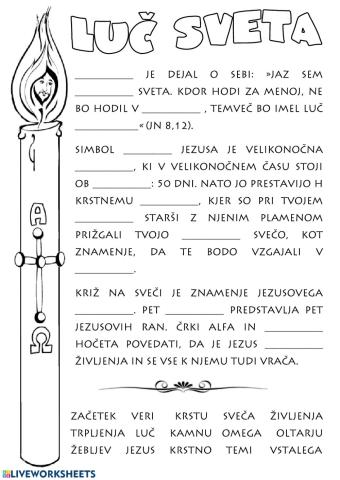 LUČ SVETA
__________ JE DEJAL O SEBI: »JAZ SEM
__________ SVETA. KDOR HODI ZA MENOJ, NE
BO HODIL V __________ , TEMVEČ BO IMEL LUČ
__________« (JN 8,12).
SIMBOL __________ JEZUSA JE VELIKONOČNA
__________, KI V VELIKONOČNEM ČASU STOJI
OB __________: 50 DNI. NATO JO PRESTAVIJO H
KRSTNEMU __________, KJER SO PRI TVOJEM
__________ STARŠI Z NJENIM PLAMENOM
PRIŽGALI TVOJO __________ SVEČO, KOT
ZNAMENJE, DA TE BODO VZGAJALI V
__________.
KRIŽ NA SVEČI JE ZNAMENJE JEZUSOVEGA
__________. PET __________ PREDSTAVLJA PET
JEZUSOVIH RAN. ČRKI ALFA IN __________
HOČETA POVEDATI, DA JE JEZUS __________
ŽIVLJENJA IN SE VSE K NJEMU TUDI VRAČA.
A
Ω
ZAČETEK VERI KRSTU SVEČA ŽIVLJENJA
TRPLJENJA LUČ KAMNU OMEGA OLTARJU
ŽEBLJEV JEZUS KRSTNO TEMI VSTALEGA
LIVEWORKSHEETS